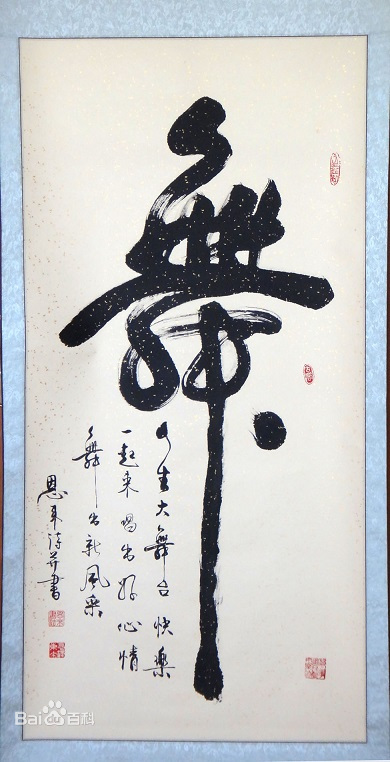 舞
人生大舞台 快樂
一起来唱出好心情
舞出新风采
恩来诗并書
Bai百科